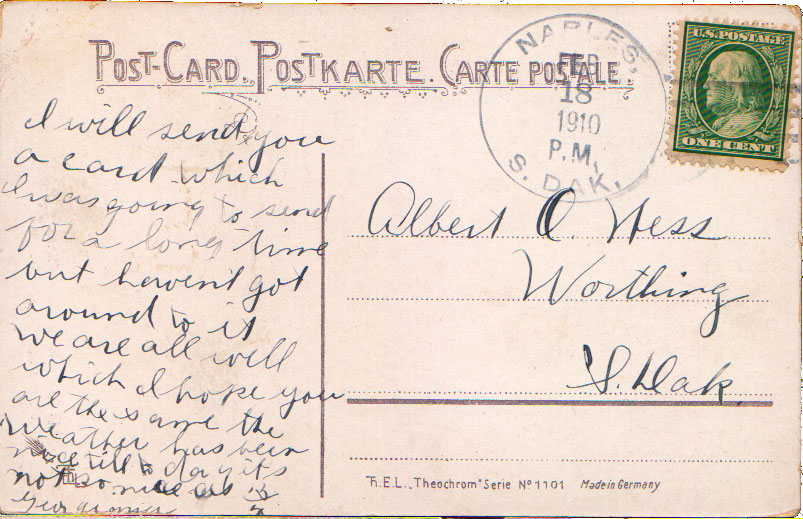 POST-CARD. POSTKARTE. CARTE POSTALE.
NAPLES,
FEB
18
1910
P.M.
S. DAK.
U.S. POSTAGE
ONE CENT
I will send you
a card which
I was going to send
for a long time
but havent got
around to it
we are all well
which I hope you
are the same the
weather has been
nice till to day its
not so nice
Albert O. Hess
Worthing
S. Dak.
T.E.L. „Theochrom" Serie Nº 1101 Made in Germany